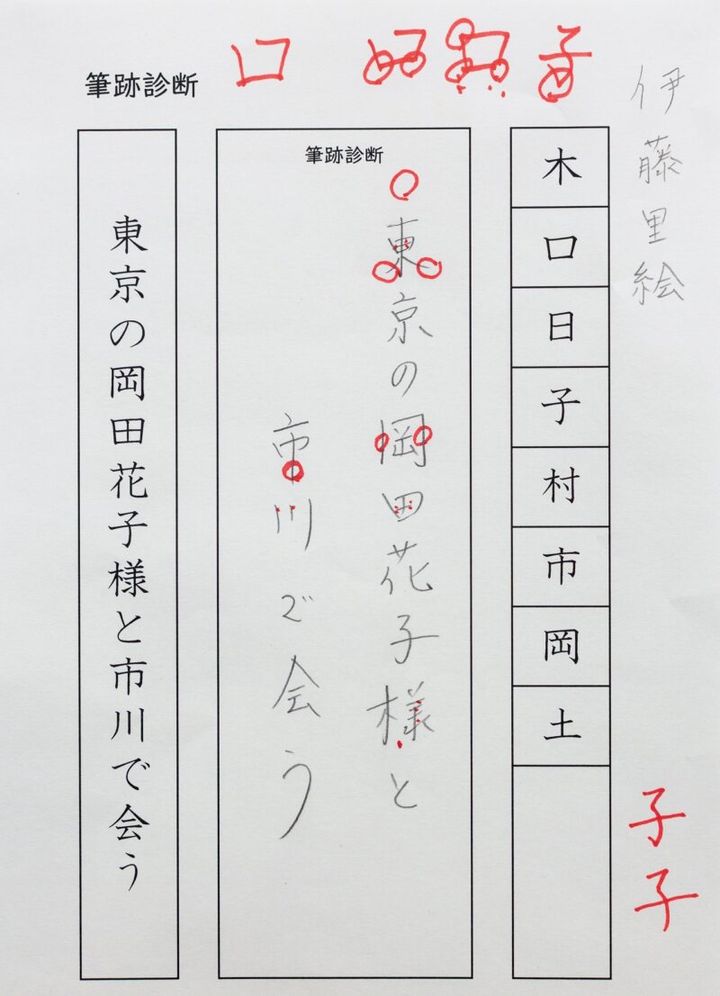 伊藤里絵
木
口
日
子
村
市
岡
土
子
子
筆跡診断
東京の岡田花子様と
市川で会う
口
子
筆跡診断
東京の岡田花子様と市川で会う